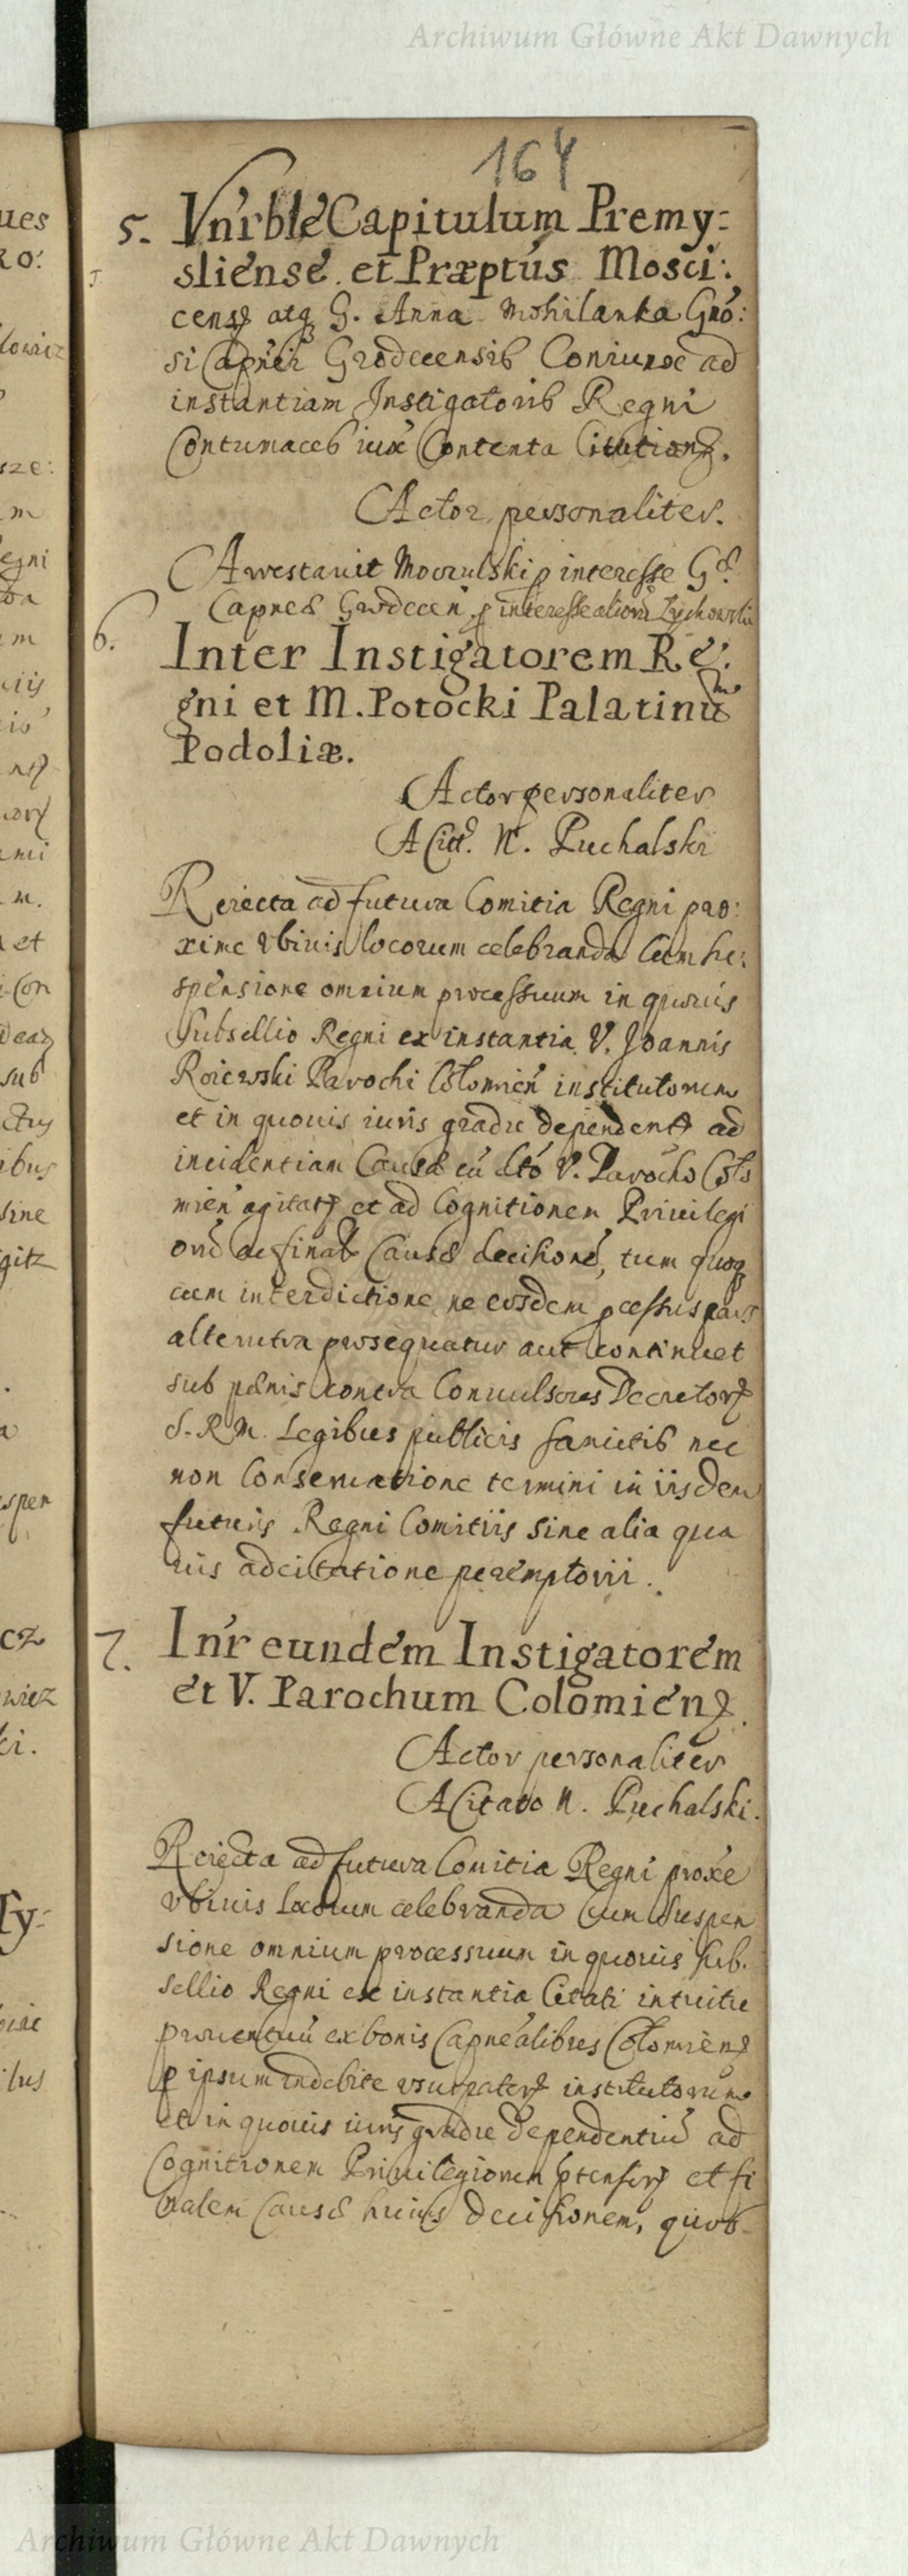 Archiwum Główne Akt Dawnych
164
5. Vn'rble Capitulum Premy:
sliense et Præptus Mosci:
cens atq G. Anna Mohilanka Gno:
si Capnei Grodecensis Coniunx ad
instantiam Instigatoris Regni
Contumaces iux Contenta Citation.
Actor personaliter.
Arrestauit p interesse G
Capnei Grodecen p interesse alior
6. Inter Instigatorem Re:
gni et M. Potocki Palatinu
Podoliæ.
Actor personaliter
A Citt. N. Puchalski
Reiecta ad futura Comitia Regni pro:
xime vbiuis locorum celebranda Cum su:
spensione omnium processuum in quouis
Subsellio Regni ex instantia V. Joannis
Roiewski Parochi Colomien institutorum
et in quouis iuris gradu dependent ad
incidentiam Causæ cu dto V. Parocho Colo
mien agitat et ad Cognitionem Priuilegi
oru ac final Causæ decisione, tum quoq
cum interdictione ne eosdem pcessus pars
alterutra prosequatur aut continuet
sub pænis contra Conuulsores Decretor
S. R. M. Legibus publicis sancitis nec
non Conseruatione termini in iisdem
futuris Regni Comitiis sine alia qua
uis adcitatione peremptorii.
7. In'r eundem Instigatorem
et V. Parochum Colomien.
Actor personaliter
A Citato N. Puchalski.
Reiecta ad futura Comitia Regni proxe
vbiuis locorum celebranda Cum suspen
sione omnium processuum in quouis sub.
sellio Regni ex instantia Citati intuitu
prouentuu ex bonis Capnealibus Colomien
p ipsum indebite vsurpator institutorum
et in quouis iuris gradu dependentiu ad
Cognitionem Priuilegiorum ptensor et fi
nalem Causæ huius decisionem, quos
Archiwum Główne Akt Dawnych